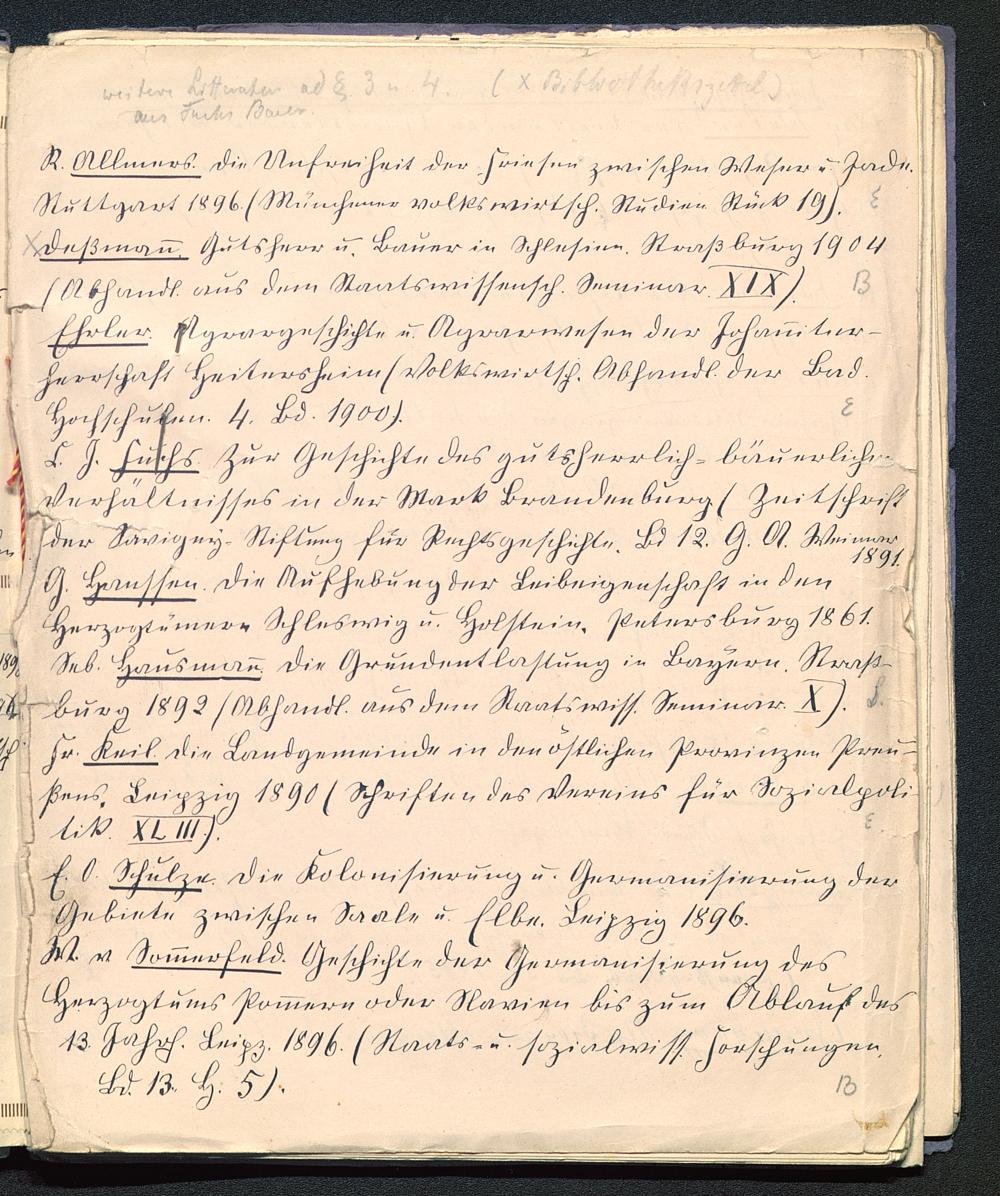 weitere Litteratur ad §. 3 u 4. (x Bibliothekszettel)
aus Fuchs Bauer.
R. Allmers. Die Unfreiheit der Friesen zwischen Weser u. Jade.
Stuttgart 1896. (Münchener volkswirtsch. Studien Stück 19). E
x Deßman̄. Gutsherr u. Bauer in Schlesien. Straßburg 1904
(Abhandl. aus dem Staatswissensch. Seminar. XIX). B
Ehrler. Agrargeschichte u. Agrarwesen der Johan̄iter-
herrschaft Heitersheim (Volkswirtsch. Abhandl. der Bad.
Hochschulen. 4. Bd. 1900). E
C. J. Fuchs. Zur Geschichte des gutsherrlich-bäuerlichen
Verhältnisses in der Mark Brandenburg (Zeitschrift
der Savigny-Stiftung für Rechtsgeschichte. Bd 12. G. A. Weimar
1891.
G. Hanssen. Die Aufhebung der Leibeigenschaft in den
Herzogtümern Schleswig u. Holstein. Petersburg 1861.
Seb. Hausman̄. Die Grundentlastung in Bayern. Straß-
burg 1892 (Abhandl. aus dem Staatswiss. Seminar. X).
Fr. Keil. Die Landgemeinde in den östlichen Provinzen Preu-
ßens. Leipzig 1890 (Schriften des Vereins für Sozialpoli-
tik. XLIII). E
E. O. Schulze. Die Kolonisierung u. Germanisierung der
Gebiete zwischen Saale u. Elbe. Leipzig 1896.
W. v Som̄erfeld. Geschichte der Germanisierung des
Herzogtums Pom̄ern oder Slavien bis zum Ablauf des
13. Jahrh. Leipz. 1896. (Staats- u. sozialwiss. Forschungen.
Bd. 13. H. 5). B